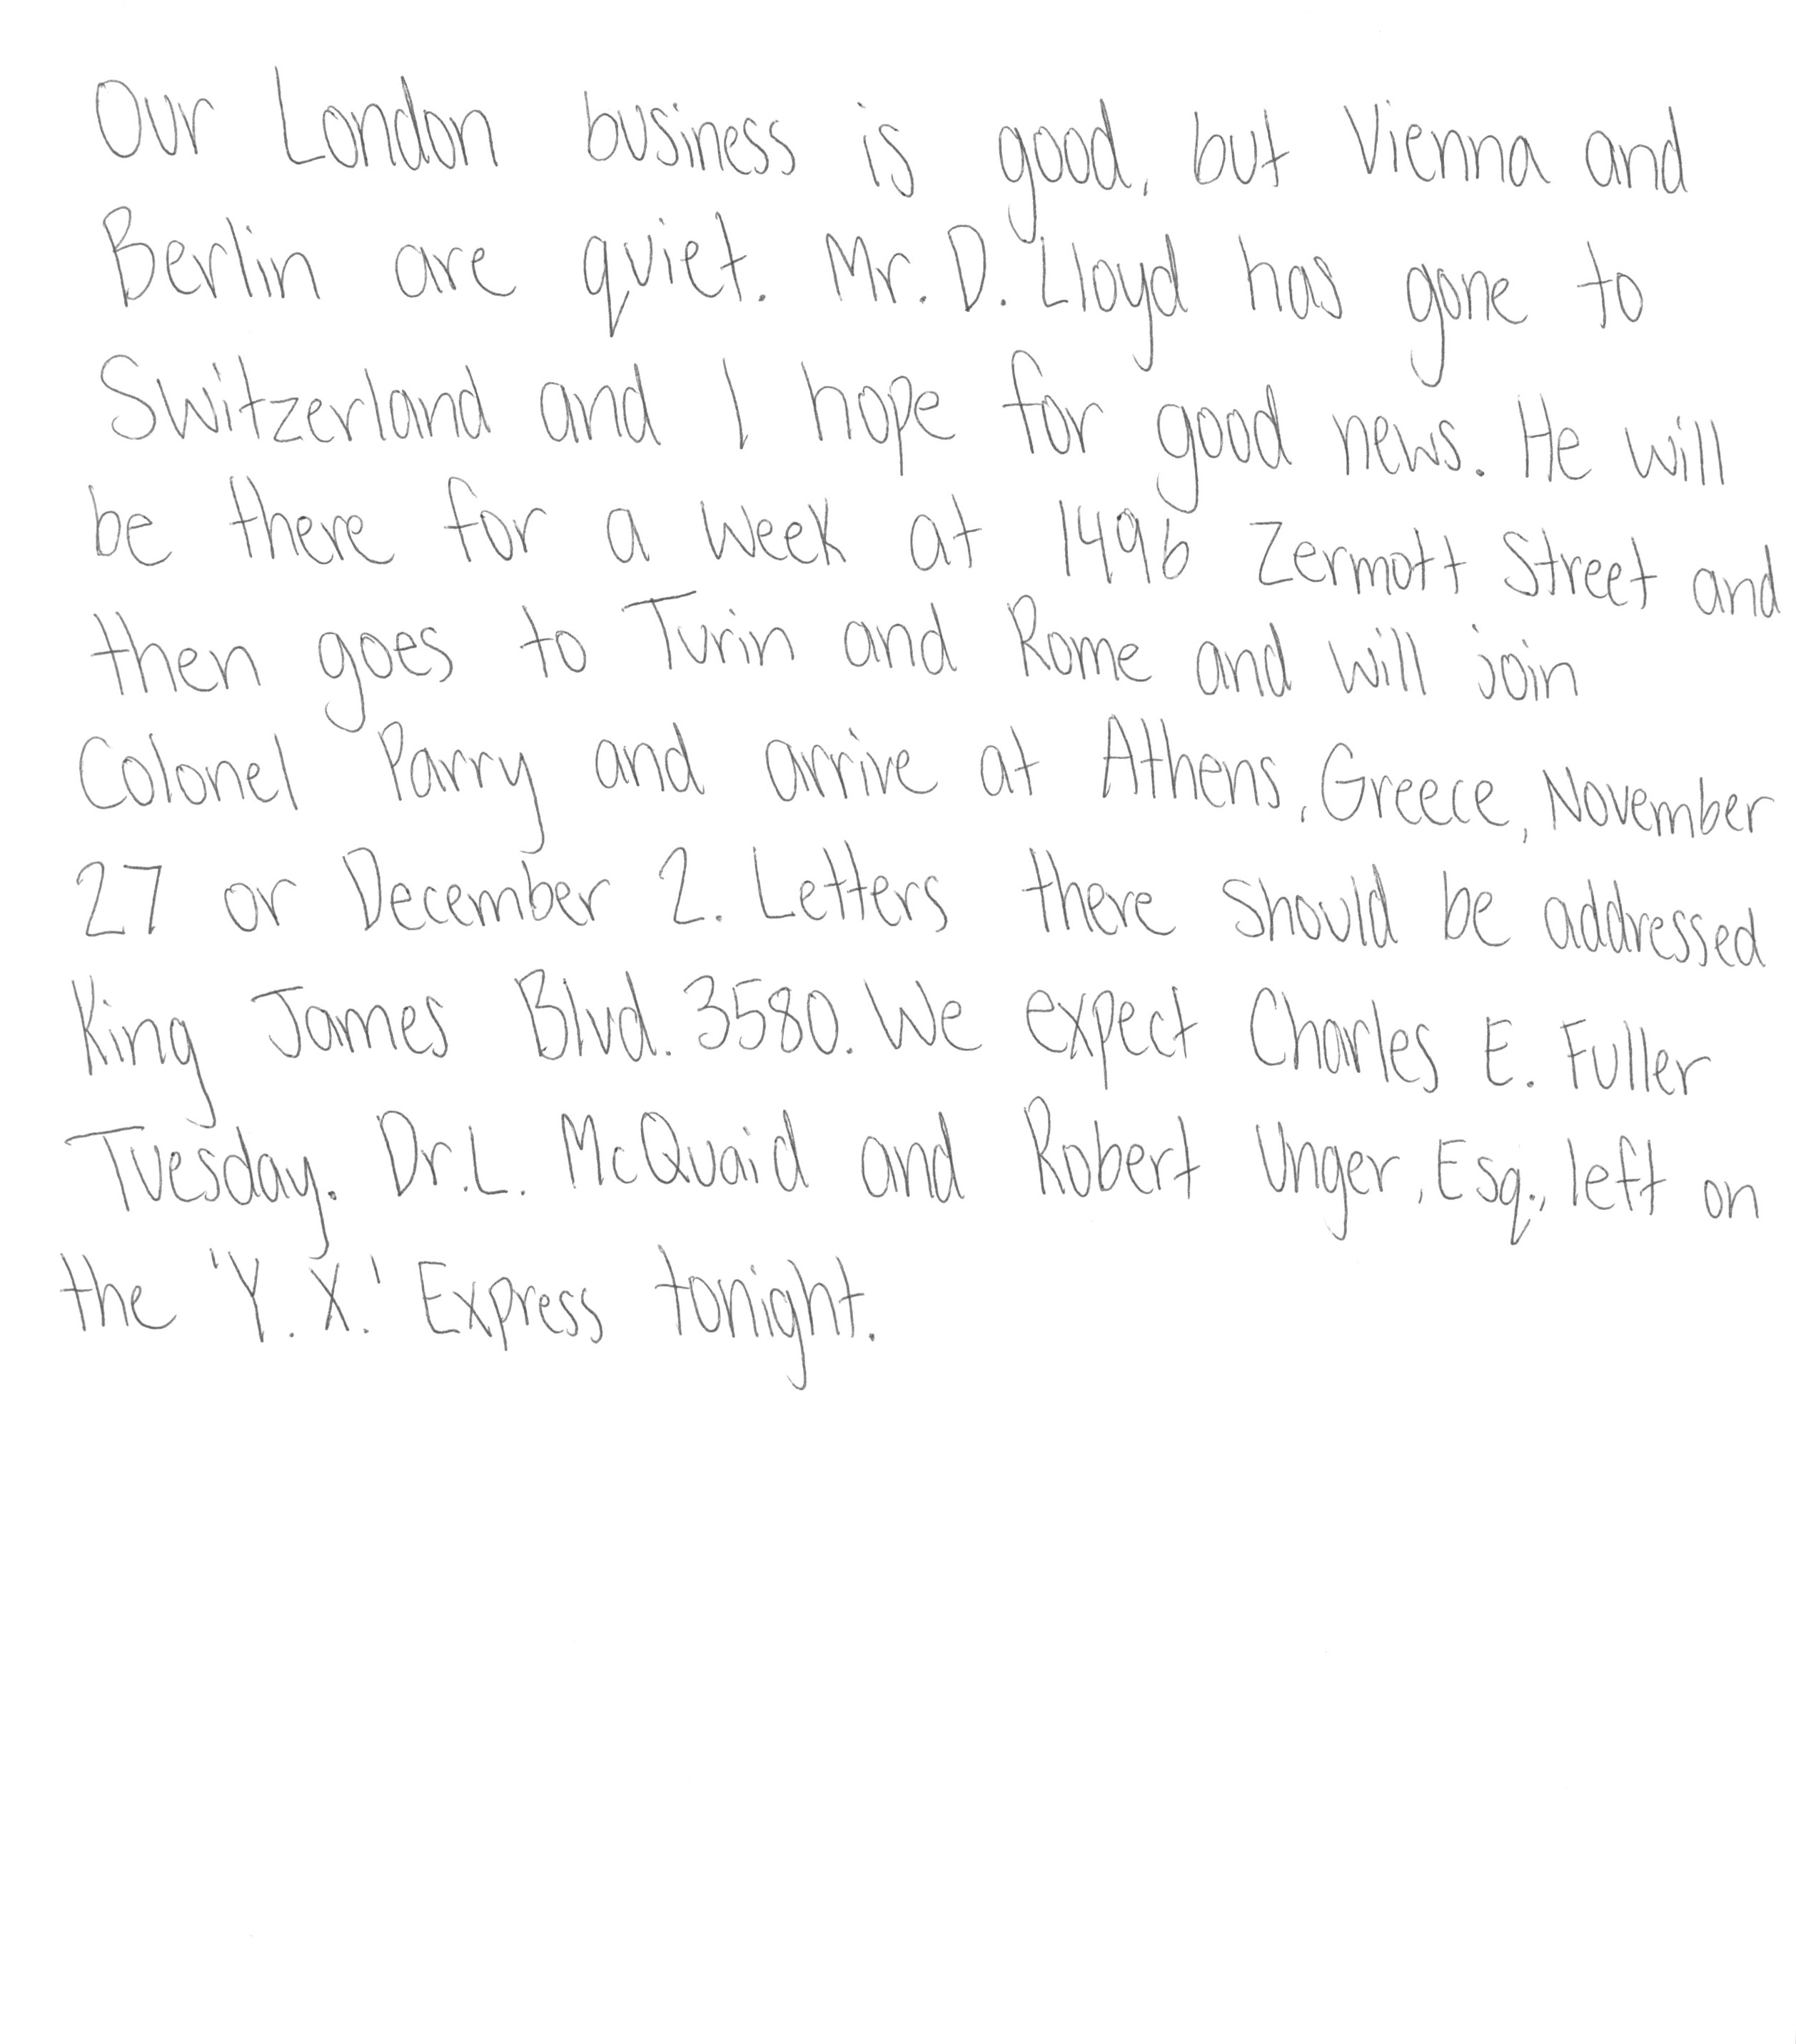 Our London business is good, but Vienna and
Berlin are quiet. Mr. D. Lloyd has gone to
Switzerland and I hope for good news. He will
be there for a week at 1496 Zermott Street and
then goes to Turin and Rome and will join
Colonel Parry and arrive at Athens, Greece, November
27 or December 2. Letters there should be addressed
King James Blvd. 3580. We expect Charles E. Fuller
Tuesday. Dr. L. McQuaid and Robert Unger, Esq., left on
the 'Y. X.' Express tonight.